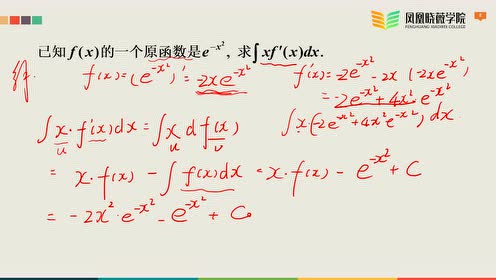 凤凰晓薇学院
FENGHUANG XIAOWEI COLLEGE
已知 f(x)的一个原函数是e^{-x²}, 求∫xf'(x)dx.
解. f(x)=(e^{-x²})'=-2xe^{-x²} f'(x)=-2e^{-x²}-2x·(-2xe^{-x²})
=-2e^{-x²}+4x²·e^{-x²}
∫x·f'(x)dx=∫x d f(x) ∫x·(-2e^{-x²}+4x²e^{-x²})dx
u u v
= x·f(x) - ∫f(x)dx = x·f(x) - e^{-x²}+C
= -2x²·e^{-x²} - e^{-x²} + C